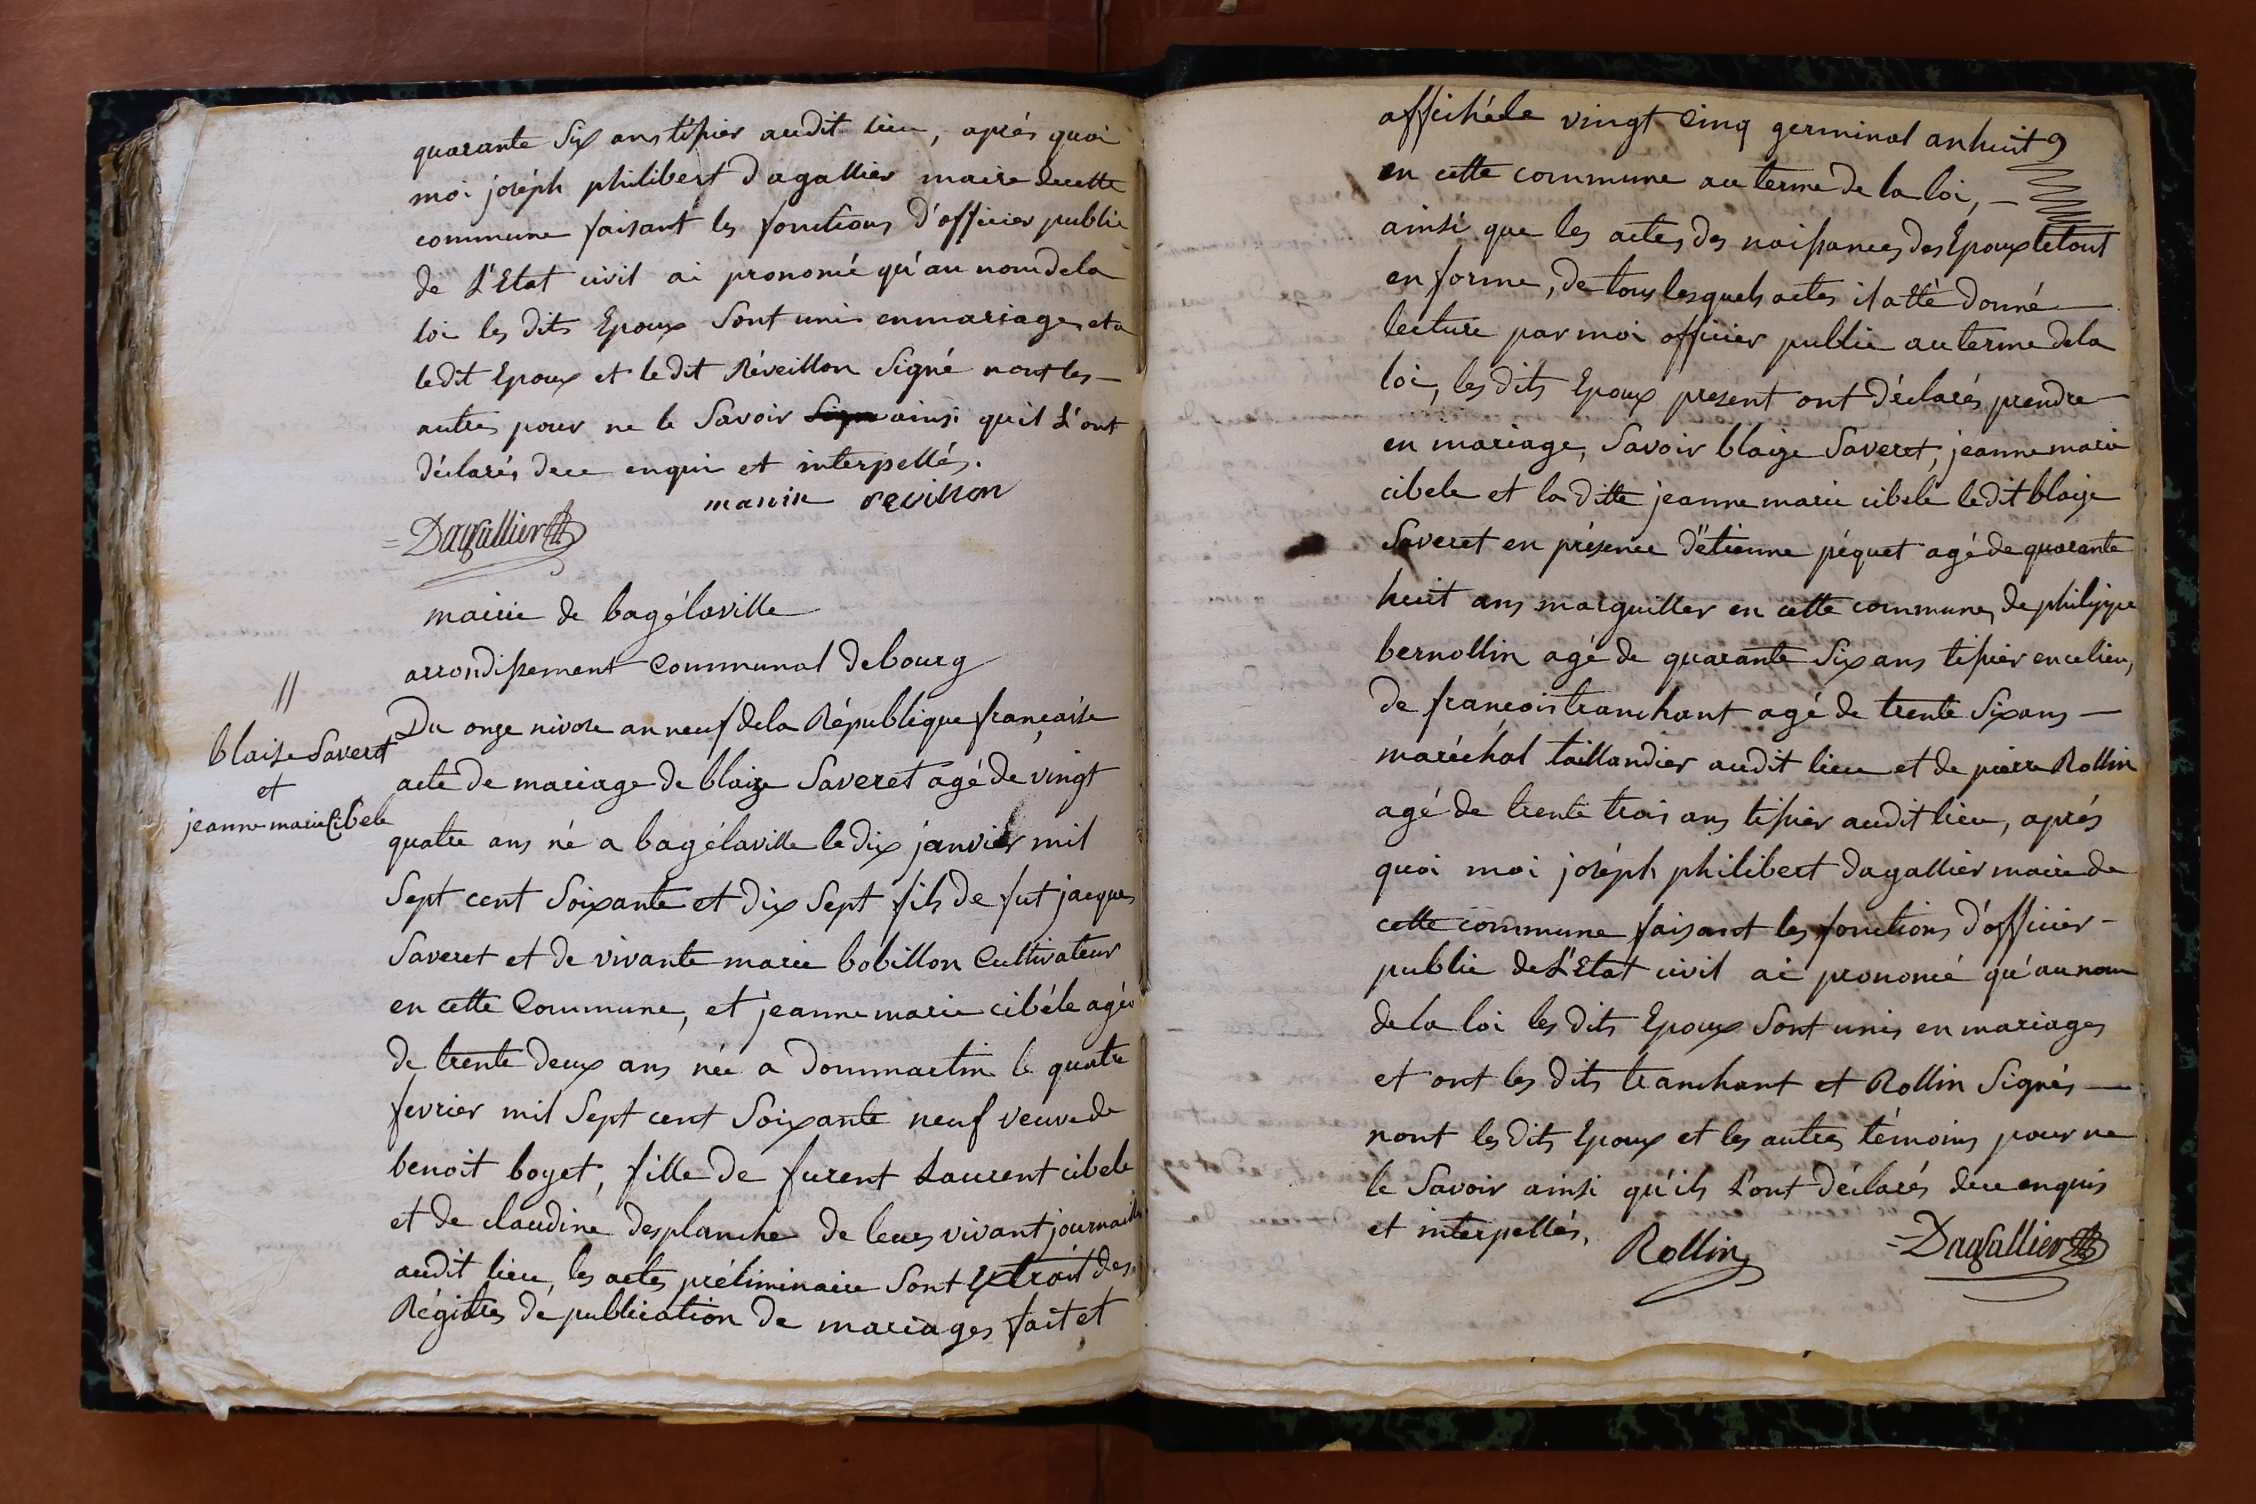 quarante six ans tissier audit lieu, aprés quoi
moi joséph philibert Dagallier maire decette
commune faisant les fonctions d'officier public
de L'Etat civil ai prononcé qu'au nom dela
loi les dits Epoux sont unis en mariage, et a
ledit Epoux et le dit Réveillon signé nont les —
autres pour ne le savoir ainsi quil L'ont
déclarés, dece enquis et interpellés.
revillon
= Dagallier
mairie de bagélaville
arrondissement Communal debourg
//
blaise Saveret
et
jeanne marie Cibele
Du onze nivose an neuf dela République française,
acte de mariage de blaize Saveret agé de vingt
quatre ans né a bagélaville le dix janvier mil
sept cent soixante et dix sept fils de fut jacques
Saveret et de vivante marie bobillon Cultivateur
en cette Commune, et jeanne marie cibéle agée
de trente deux ans née a dommartin le quatre
fevrier mil sept cent soixante neuf veuve de
benoit boyet, fille de furent Laurent cibele
et de claudine desplanche de leurs vivant journaillé
audit lieu, les actes préliminaire sont Extrait des
Régitres de publication de mariages fait et
affichéde vingt cinq germinal an huit
en cette commune au terme de la loi, —
ainsi que les actes des naissances des Epoux le tout
en forme, de tous lesquels actes il atté donné —
lecture par moi officier public au terme dela
loi, les dits Epoux present ont déclarés prendre —
en mariage, savoir blaize Saveret, jeanne marie
cibele et la ditte jeanne marie cibele ledit blaize
Saveret en présence d'étienne péquet agé de quarante
huit ans marguiller en cette commune, de philippe
bernollin agé de quarante six ans tissier en celieu,
de francois tranchant agé de trente six ans —
maréchal taillandier audit lieu et de pierre Rollin
agé de trente trois ans tissier audit lieu, aprés
quoi moi joséph philibert dagallier maire de
cette commune faisant les fonctions d'officier —
public de L'Etat civil ai prononcé qu'au nom
de la loi les dits Epoux sont unis en mariages
et ont les dits tranchant et Rollin signés —
nont les dits Epoux et les autres témoins pour ne
le savoir ainsi qu'ils L'ont déclarés dece enquis
et interpellés.
Rollin
= Dagallier